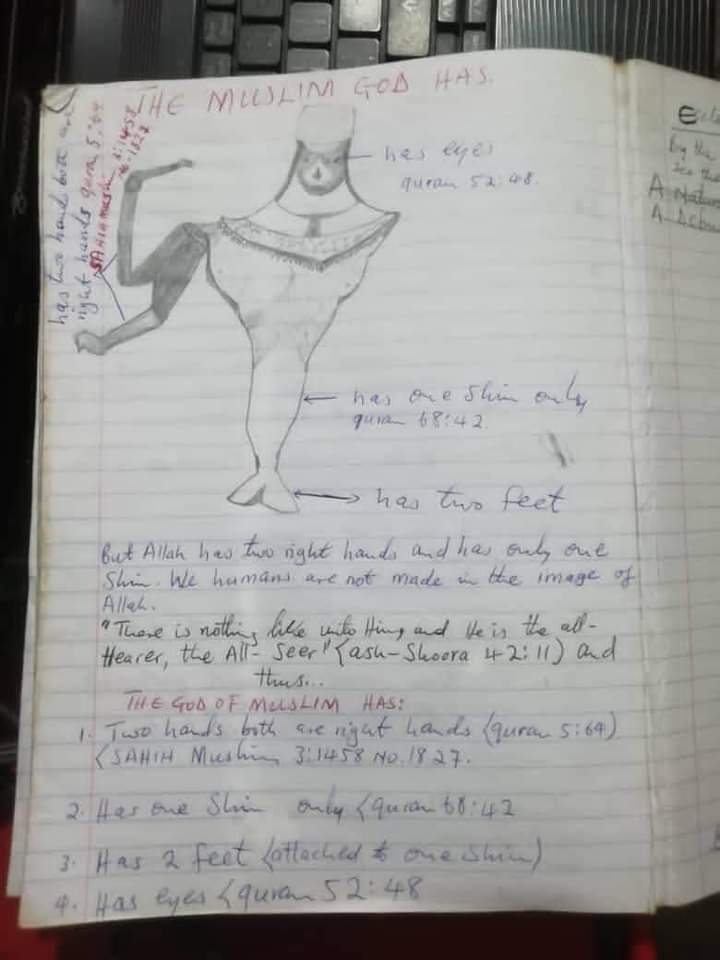 THE MUSLIM GOD HAS.
has two hands both are
right hands quran 5:64
SAHIH muslim 3:1458
no. 1827
has eyes
quran 52:48.
has one Shin only
quran 68:42.
has two feet
But Allah has two right hands and has only one
Shin. We humans are not made in the image of
Allah.
"There is nothing like unto Him, and He is the all-
Hearer, the All-Seer" (ash-Shoora 42:11) and
thus...
THE GOD OF MUSLIM HAS:
1. Two hands both are right hands (quran 5:64)
(SAHIH Muslim 3:1458 NO. 1827.
2. Has one Shin only (quran 68:42
3. Has 2 feet (attached to one shin)
4. Has eyes (quran 52:48
By the
A Natur